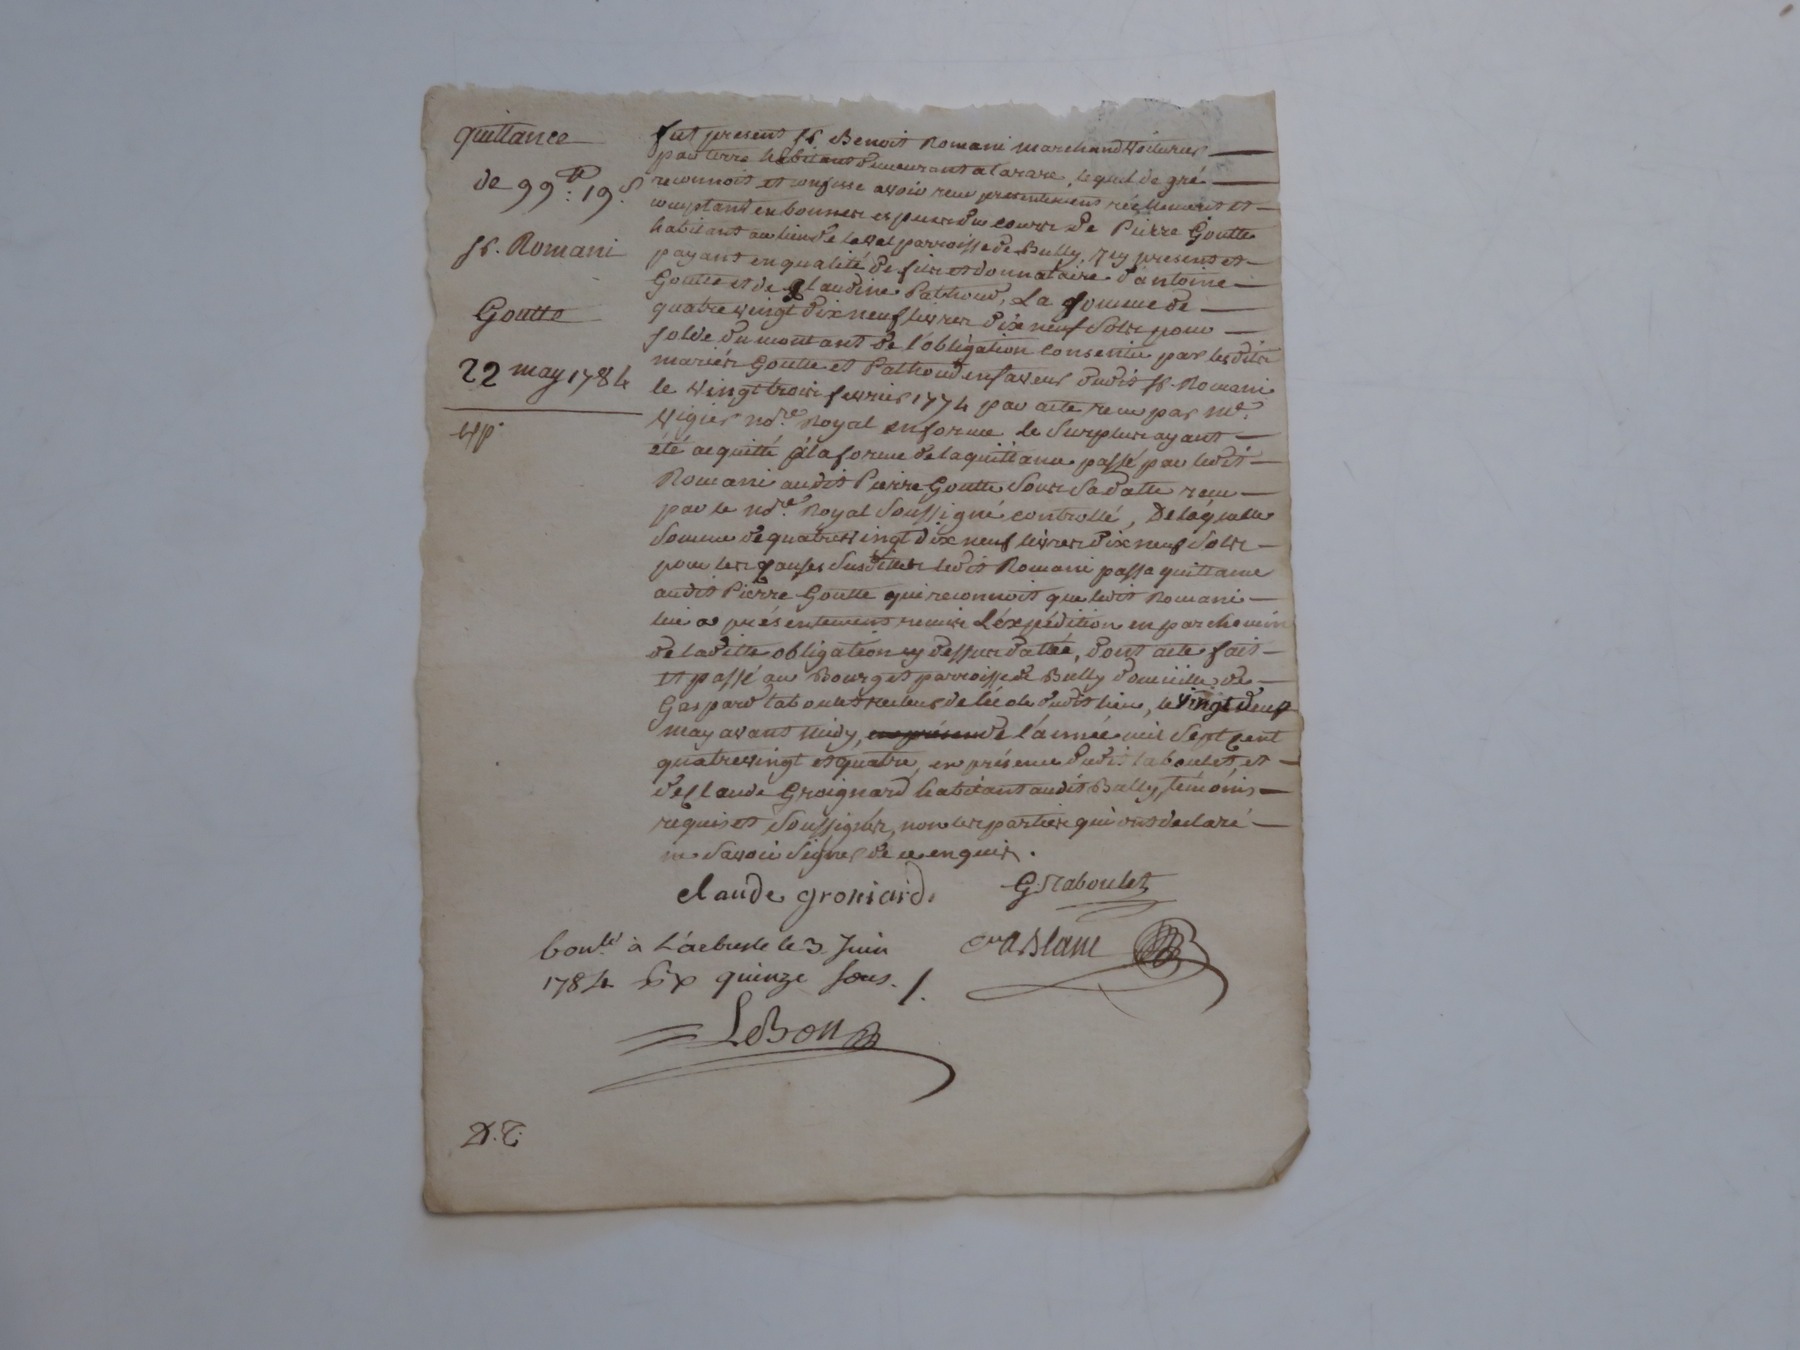 quittance
de 99.tt: 19.s
sr. Romani
Goutte
22 may 1784
fut present sr Benoit Romani marchand voiturier
par terre habitant demeurant a tarare, lequel de gré
reconnoit et confesse avoir reçu presentement réellement et
comptant en bonnes especes du cours de Pierre Goutte
habitant au lieu de paroisse de Bully, icy present et
payant en qualité de fils et donnataire d'antoine
Goutte et de Claudine Pathoud, La somme de
quatre vingt dix neuf livres dix neuf sols pour
solde du montant de l'obligation consentie par lesdits
mariés Goutte et Pathoud en faveur dudit sr. Romani
le vingt trois fevrier 1774 par acte recu par me.
Vigier nore. Royal en forme le surplus ayant
été acquitté à la forme de la quittance passé par ledit
Romani audit Pierre Goutte sous sa datte recu
par le nore. Royal soussigné controllé, De laquelle
somme de quatre vingt dix neuf livres dix neuf sols
pour les causes susdittes ledit Romani passe quittance
audit Pierre Goutte qui reconnoit que ledit Romani
lui a présentement remis l'éxpédition en parchemin
de laditte obligation cy dessus datée, dont acte fait
et passé au Bourg et parroisse de Bully domicille de
Gaspard taboulet recteur de l'école dudit lieu, le vingt deux
may avant midy, en présence de l'année mil sept cent
quatre vingt et quatre, en présence dudit taboulet, et
de Claude Groignard habitant audit Bully, témoins
requis et soussignés, non les parties qui ont declaré
ne savoir signer de ce enquis.
claude groniard. G. Taboulet
Conlé. à L'arbresle le 3 Juin
1784 quinze sous.
LeBon
D.T.